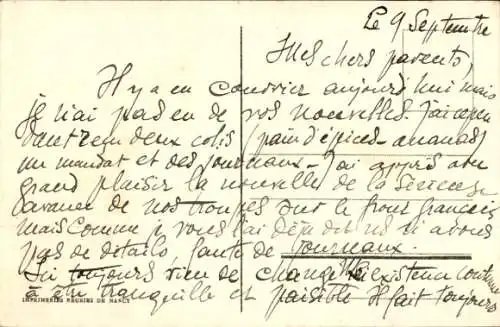 Le 9 Septembre
Mes chers parents,
Il y a eu courrier aujourd'hui mais
je n'ai pas eu de vos nouvelles. J'ai reçu
deux colis (pain d'épices - ananas)
un mandat et des journaux - J'ai appris avec
grand plaisir la nouvelle de la
avance de nos troupes sur le front français
mais comme je vous l'ai déjà dit nous n'avons
pas de détails, faute de journaux.
Ici toujours rien de changé l'existence continue
à être tranquille et paisible Il fait toujours
IMPRIMERIES RÉUNIES DE NANCY